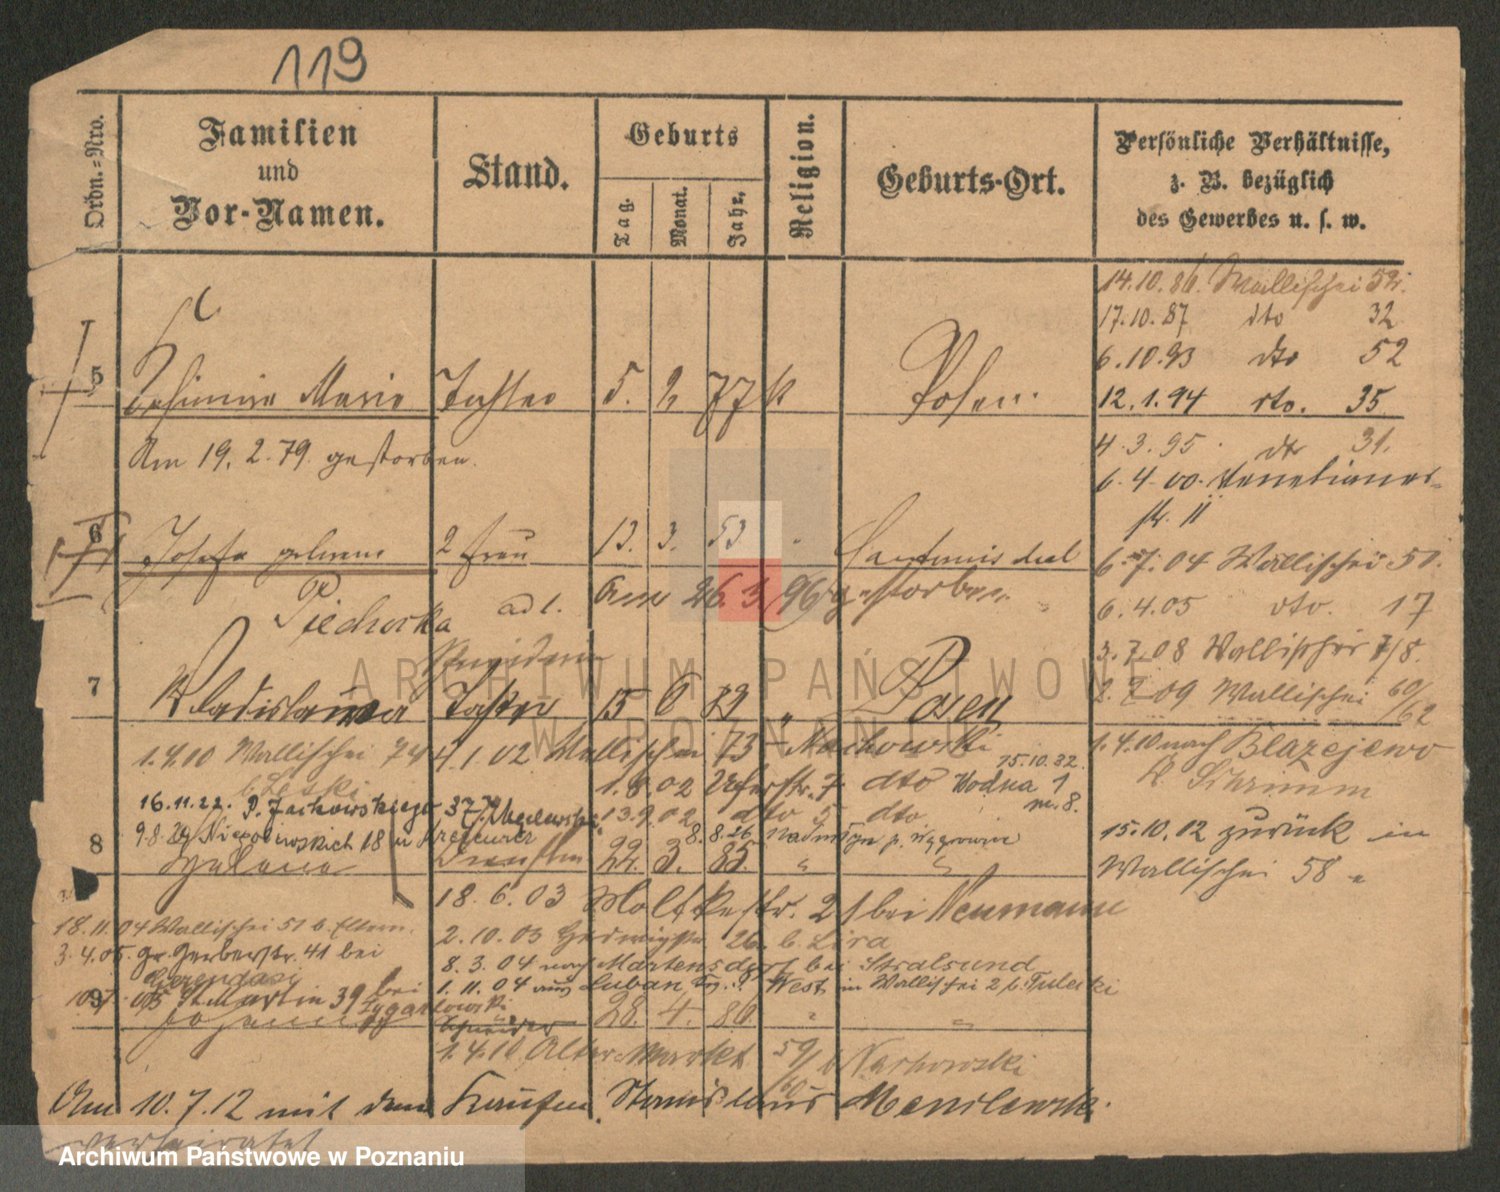 119
Ordn.-Nro.
Familien
und
Vor-Namen.
Stand.
Geburts
Tag.
Monat.
Jahr.
Religion.
Geburts-Ort.
Persönliche Verhältnisse,
z. B. bezüglich
des Gewerbes u. s. w.
14.10.86. Wallischei 52.
17.10.87 dto 32
6.10.93 dto 52
12.1.94 dto. 35
5 Casimira Marie Tochter 5. 2 77 k Posen
4.3.95. dto 31.
Am 19. 2. 79. gestorben.
6.4.00. Venetianer-
str. 11
6 Josefa geborene 2 Frau 13. 3. 53
6.7.04 Wallischei 50.
Piechocka ad 1. Am 26. 3. 96 gestorben.
6.4.05 dto. 17
3.7.08 Wallischei 7/8.
7 Wladislawa Tochter 15 6 83 " Posen
2.2.09 Wallischei 60/62
1.4.10 Wallischei 74 4.1.02 Wallischei 73 Machowski
15.10.32.
1.4.10 nach Blazejewo
Kr Schrimm
1.8.02 Uferstr. 7 dto Wodna 1
m. 8.
16.11.22. P. Jackowskiego 37
13.9.02 dto 5 dto
9.8.24 Niegolewskich 18 8.8.26
15.10.12 zurück in
Wallischei 58
8 Helena 22. 3. 85. " "
18.6.03 Moltkestr. 21 bei Neumann
18.11.04 Wallischei 51 b. Eltern.
2.10.03 Hedwigstr. 26. b. Lira
3.4.05. gr. Gerberstr. 41 bei
8.3.04 nach Martensdorf bei Stralsund
1.11.04 aus Luban in Wallischei 2 b.
9 St. Martin 39 bei
Johann Schneider 28. 4. 86 " "
1.4.10 Alter Markt 59/60 b Narhowski
Am 10.7.12 mit dem Kaufm. Stanislaus Menclewski
verheiratet
ARCHIWUM PAŃSTWOWE
W POZNANIU
Archiwum Państwowe w Poznaniu